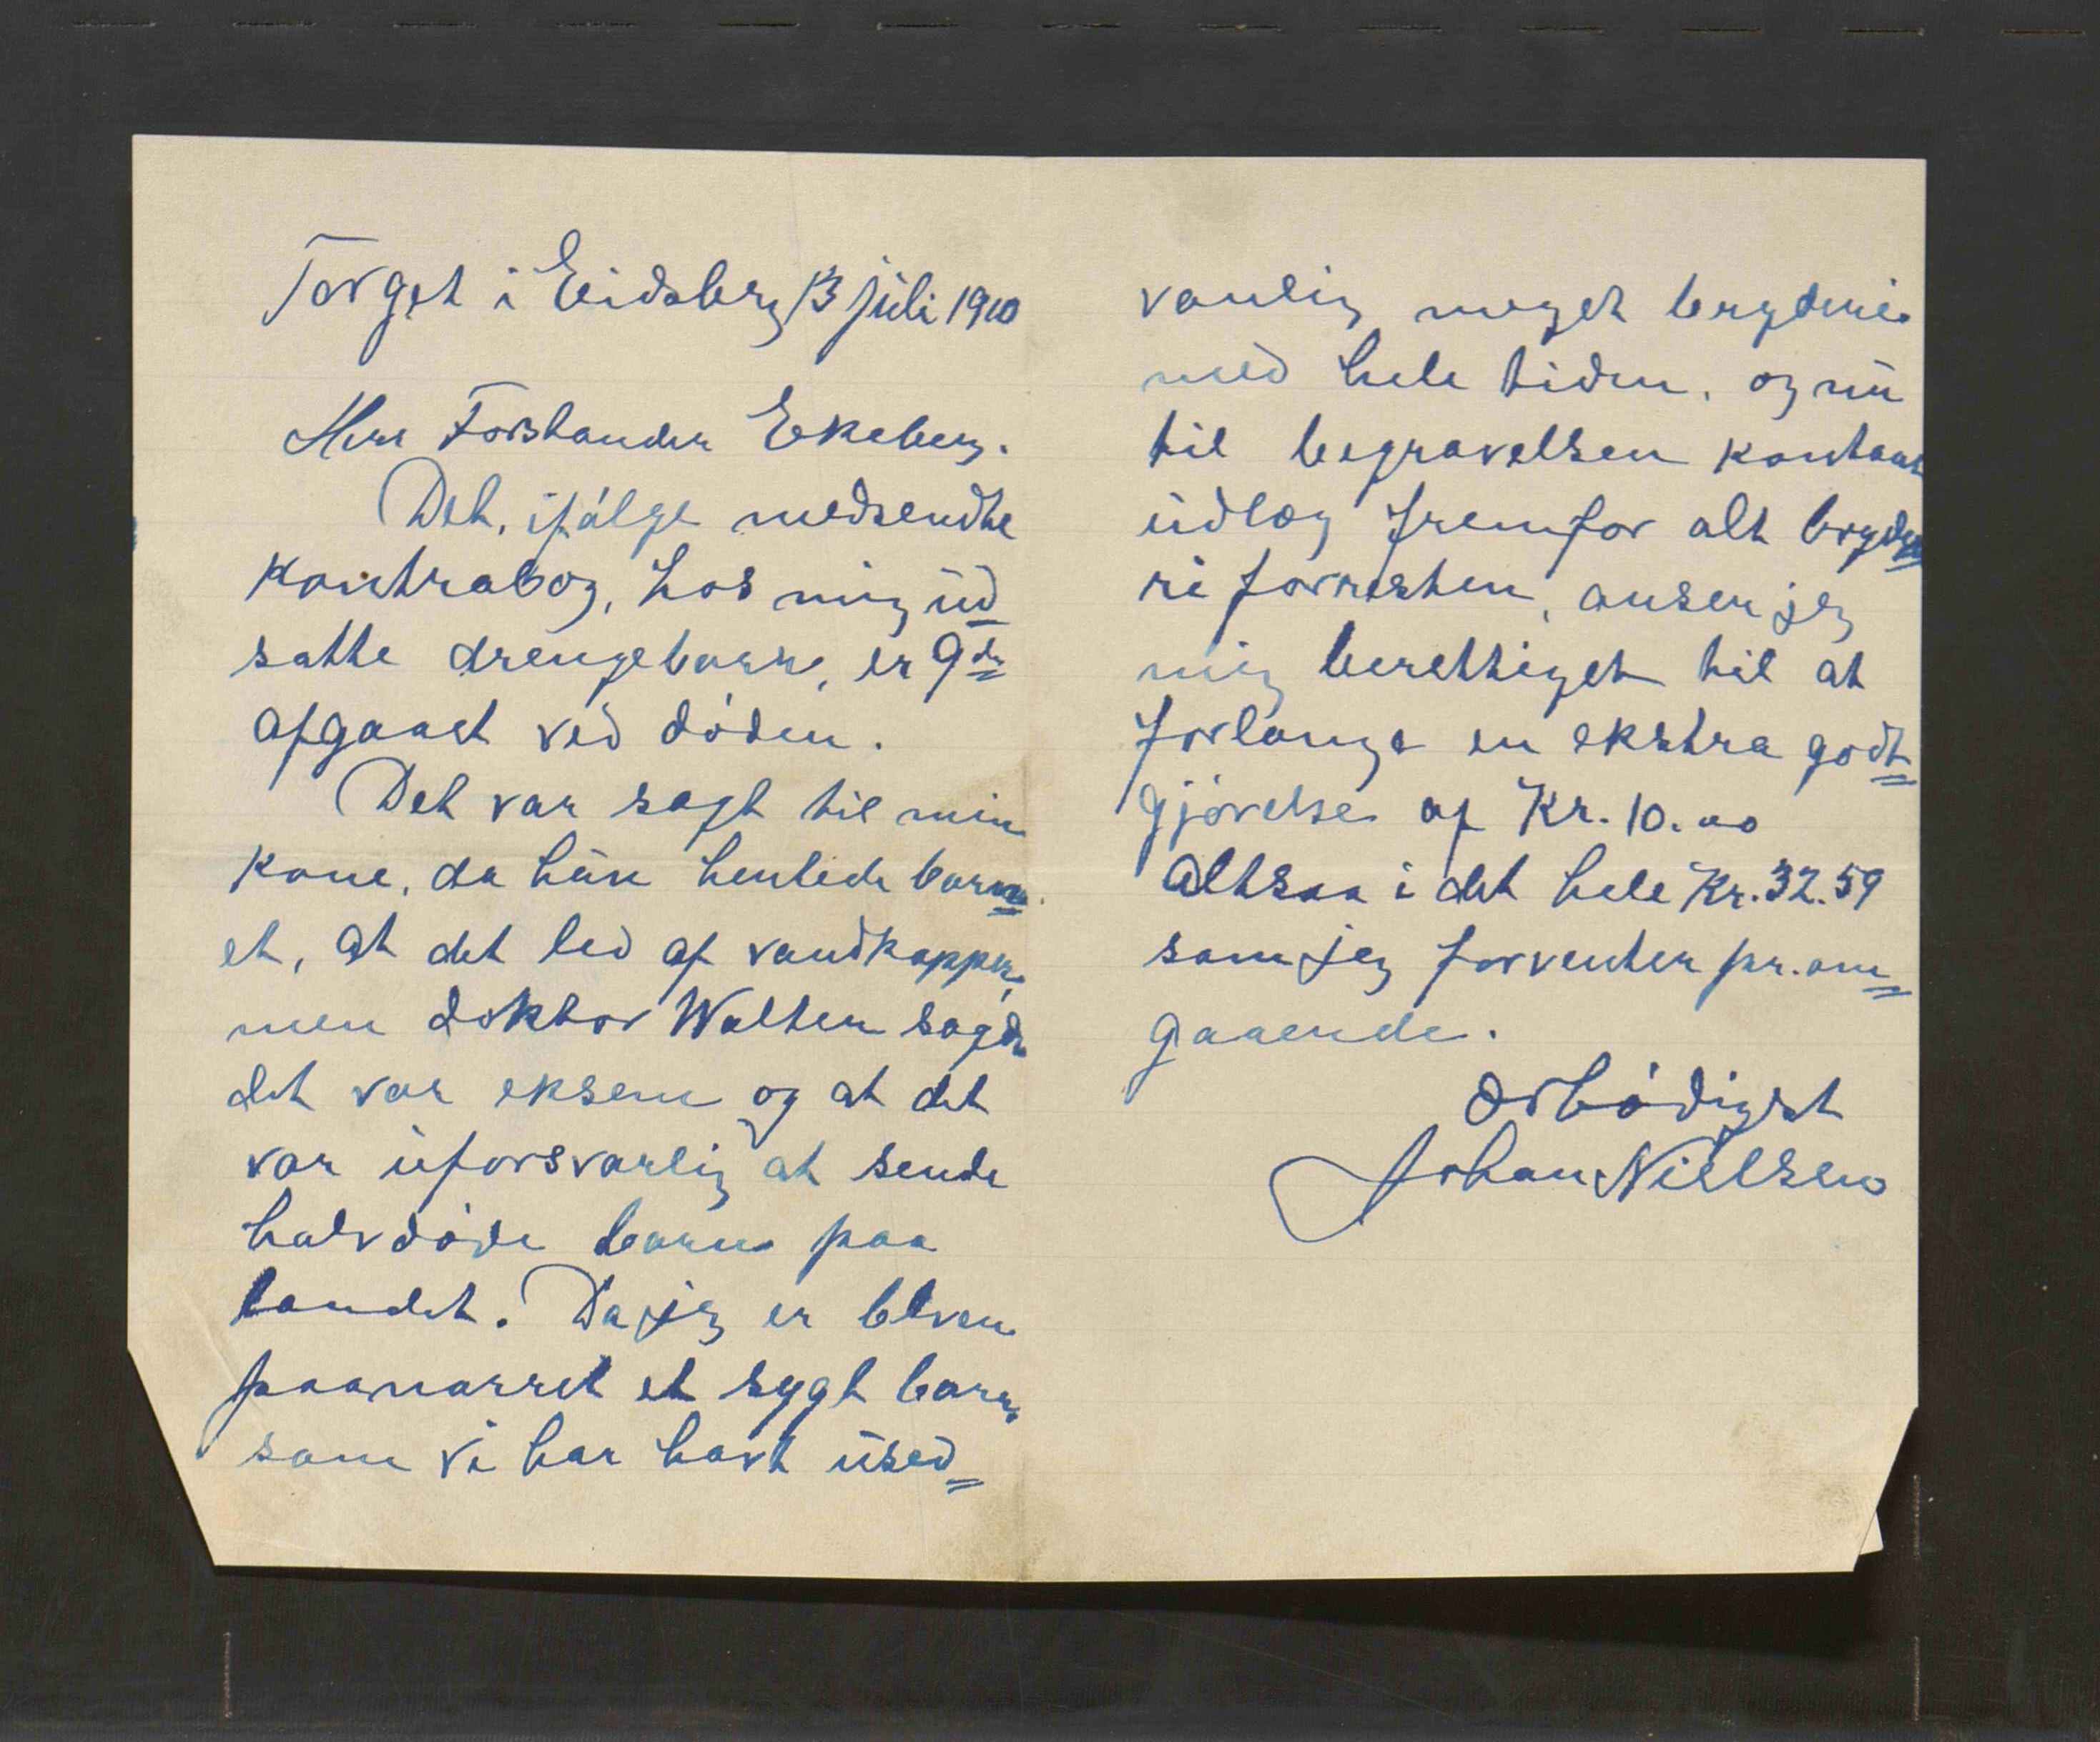 Torget i Eidsberg 13 juli 1910
Herr Forstander Ekeberg.
Det, ifølge medsendte
kontrabog, hos mig ud
satte drengebarn, er 9de
afgaaet ved døden.
Det var sagt til min
kone, da hun hentede barn
et, at det led af vandkopper,
men doktor Walter sagde
det var eksem og at det
var uforsvarlig at sende
halvdøde barn paa
landet. Da jeg er bleven
paanarret et sygt barn,
som vi har havt used=
vanlig meget bryderi
med hele tiden, og nu
til begravelsen kontant
udlæg fremfor alt bryde
ri forresten, anser jeg
mig berettiget til at
forlange en ekstra godt=
gjørelse af Kr. 10.00
Altsaa i det hele Kr. 32.59
som jeg forventer pr. om=
gaaende.
Ærbødigst
Johan Nielsen